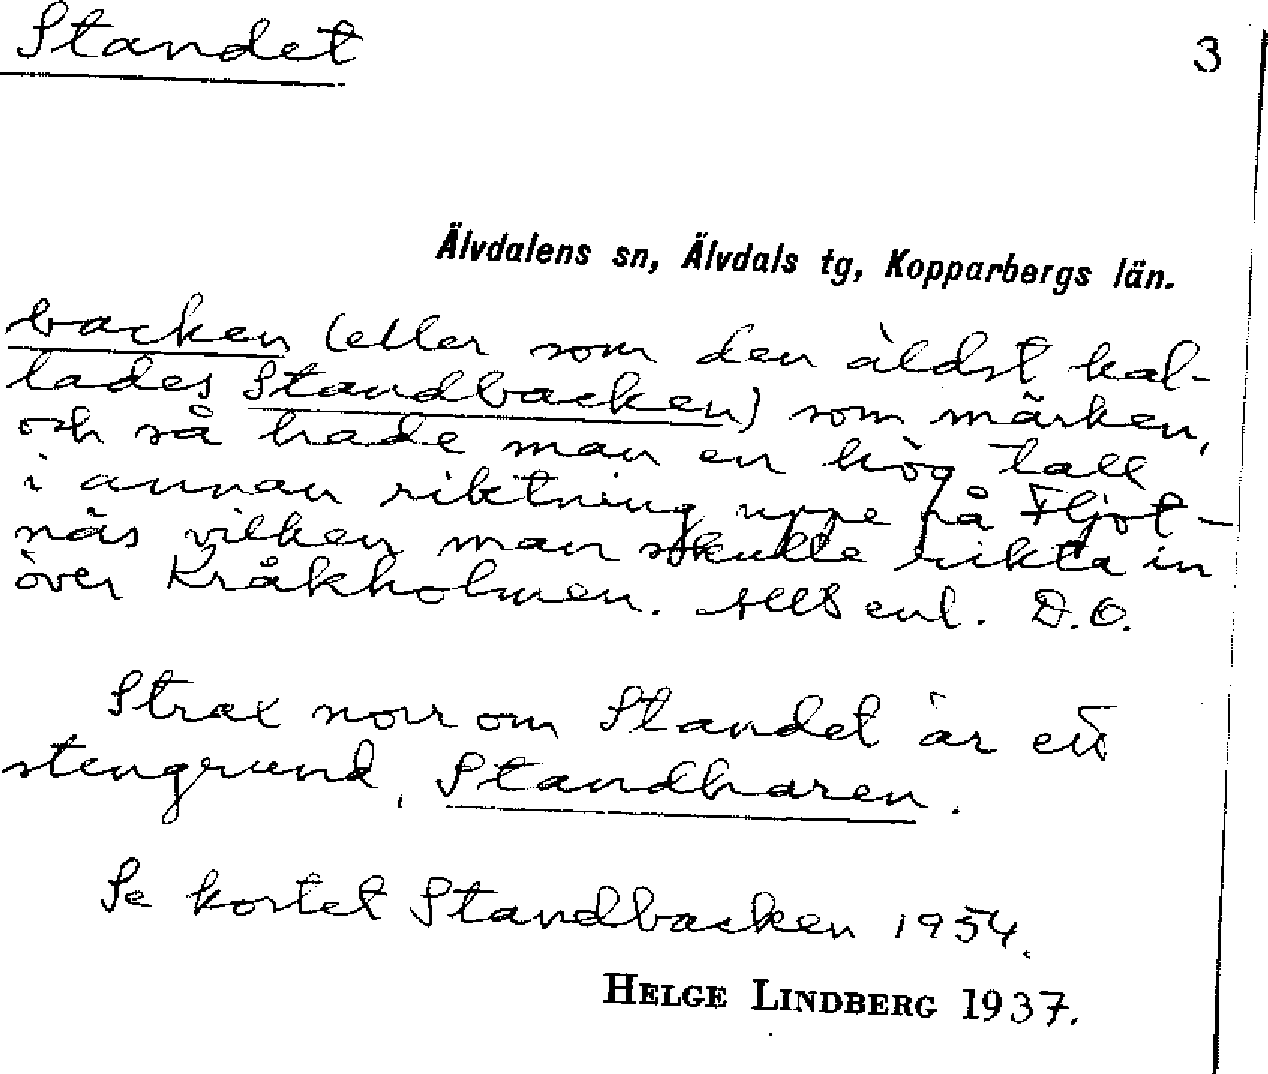 Standet 3
Älvdalens sn, Älvdals tg, Kopparbergs län.
backen (eller som den äldst kal-
lades Standbacken) som märken,
och så hade man en hög tall
i annan riktning uppe på Fljot-
näs vilken man skulle rikta in
över Kråkholmen. Allt enl. D.O.
Strax norr om Standet är ett
stengrund, Standharen.
Se kortet Standbacken 1954.
HELGE LINDBERG 1937.